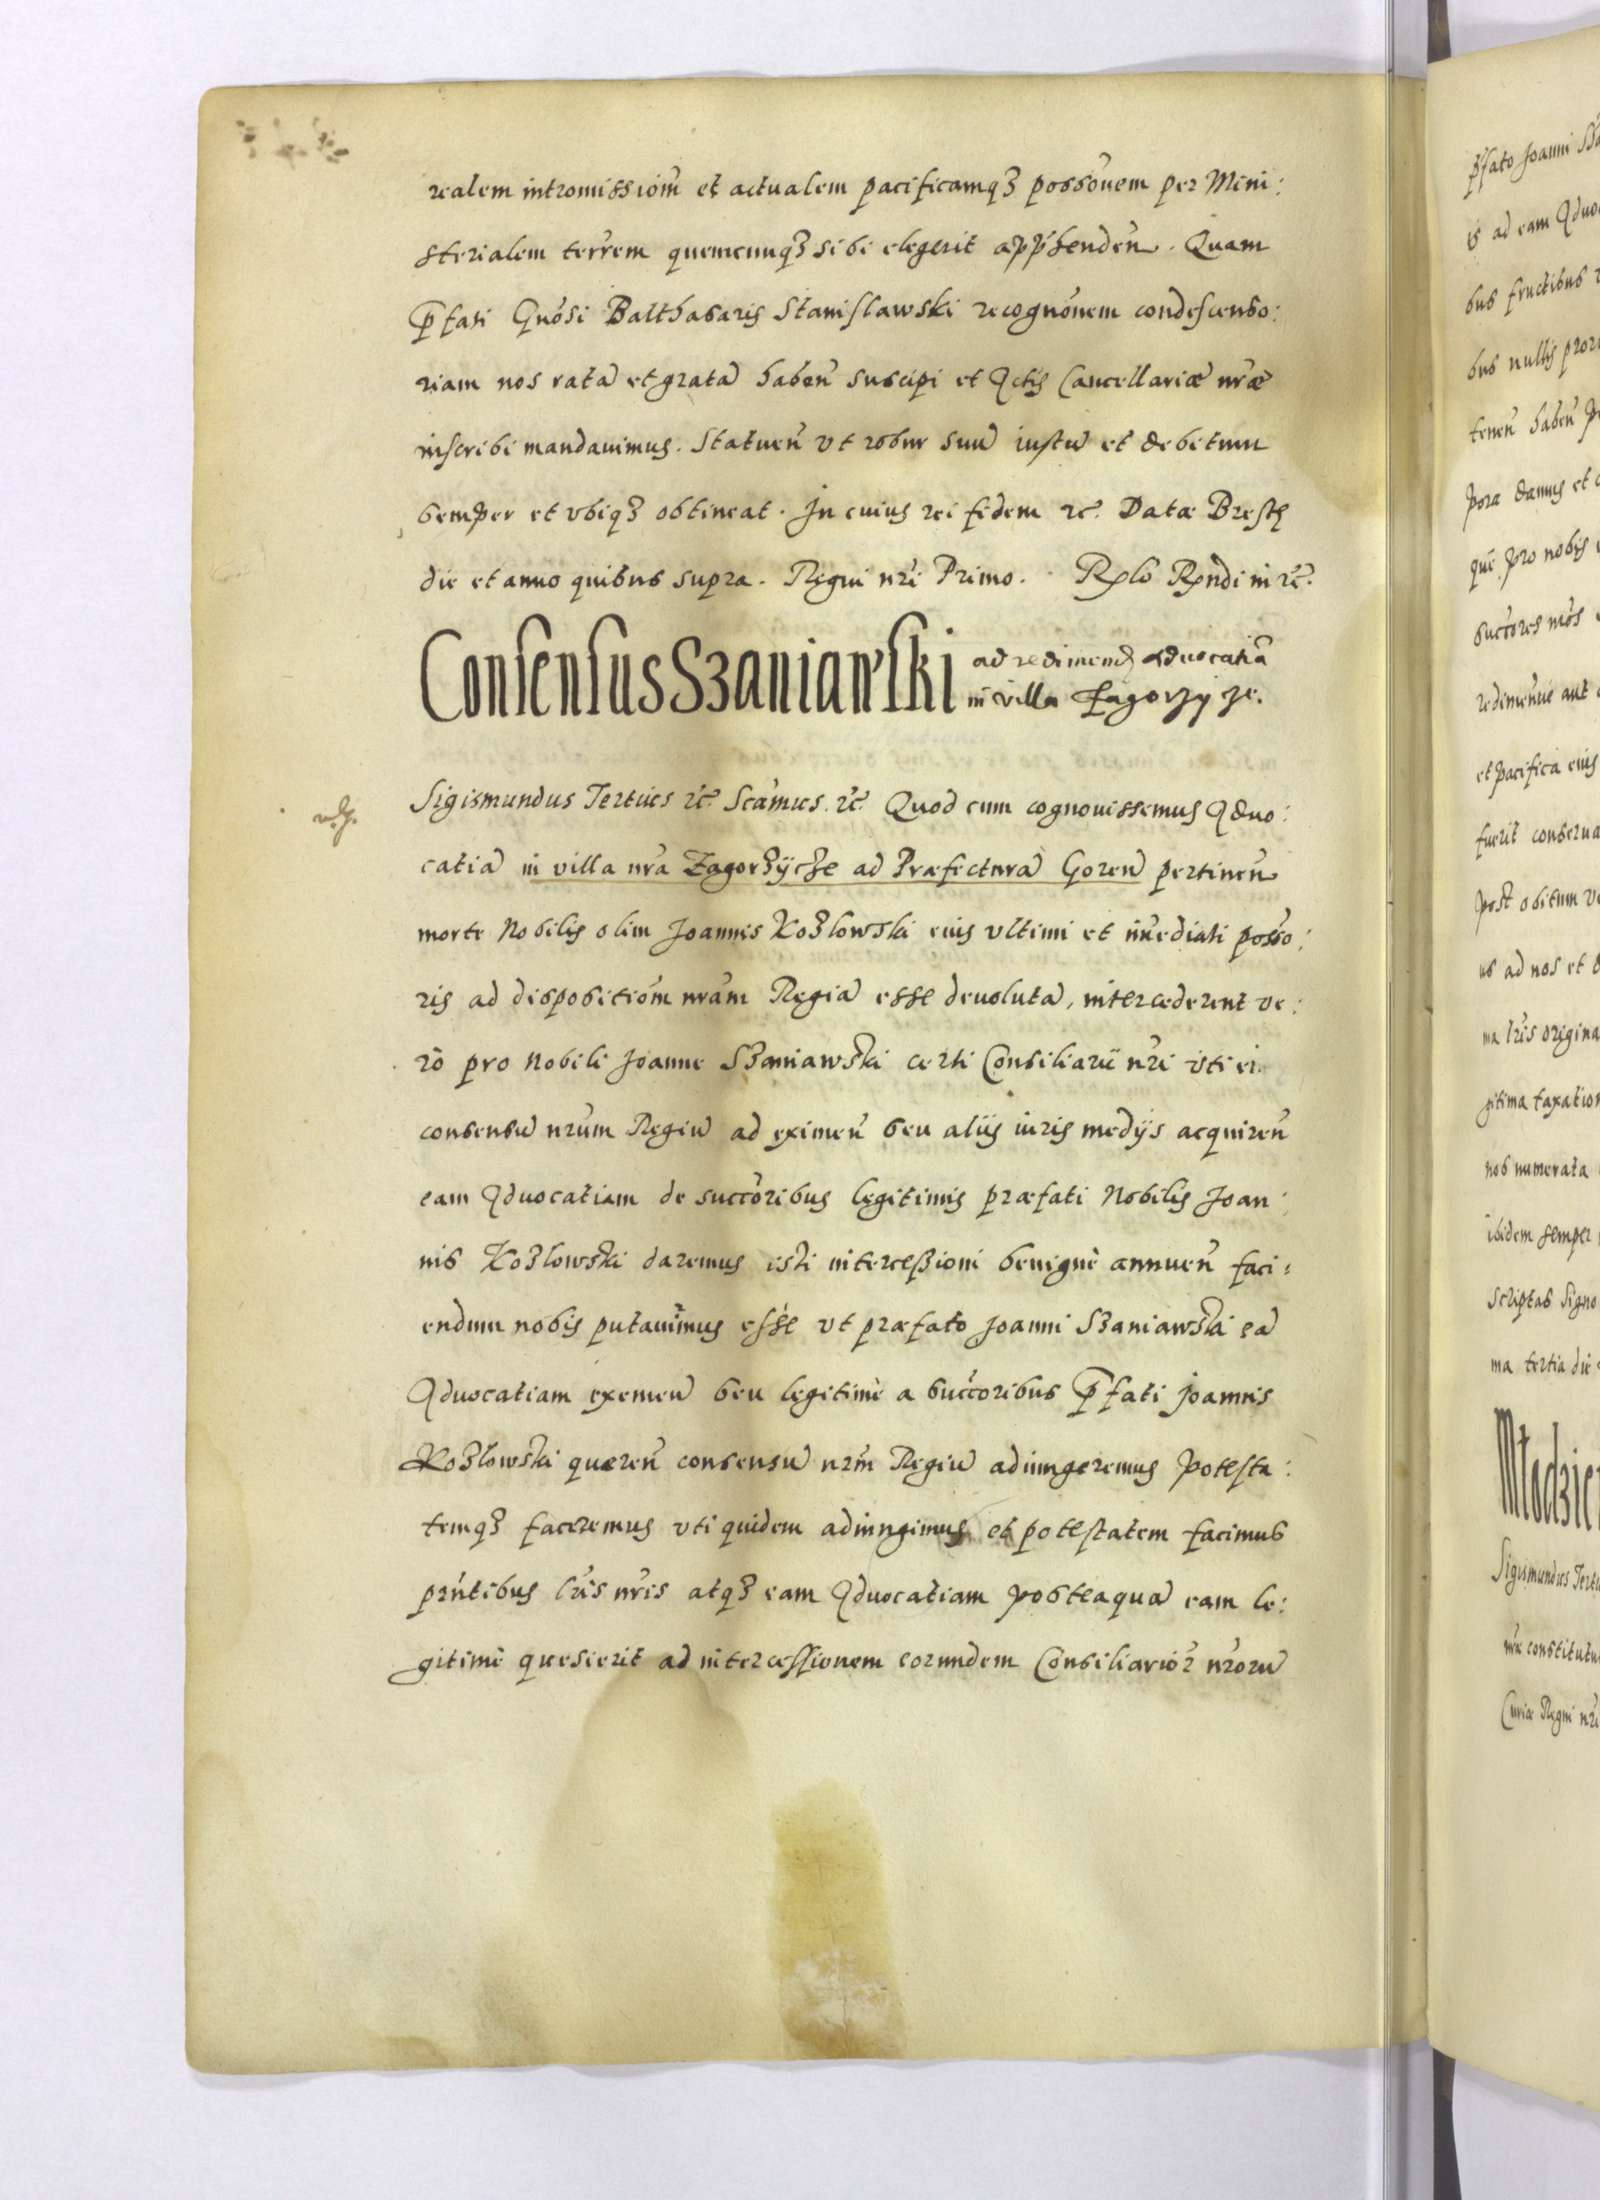 realem intromissiom̃ et actualem pacificamqʒ possõnem per Mini:
sterialem terr̃em quemcunqʒ sibi elegerit app̃henden̄. Quam
p̄fati Gnõsi Balthasaris Stanislawski recognõnem condescenso:
riam nos ratā et gratā haben̄ suscipi et Actis Cancellariæ nr̃æ
inscribi mandauimus. Statuen̄ vt robur suū iustū et debitum
semper et vbiqʒ obtineat. In cuius rei fidem rc̃. Datæ Brestæ
die et anno quibus supra. Regni nr̃i Primo. Rlo Rndi in rc̃.
Consensus Szaniawski ad redimend aduocatiā
in villa Zagorzy rc.
Sigismundus Tertius rc̃. Scãmus. rc̃. Quod cum cognouissemus Aduo:
catiā in villa nr̃a Zagorʒÿcʒe ad Præfecturā Goren̄ pertinen̄
morte Nobilis olim Joannis Koʒlowski eius vltimi et im̃ediati posso:
ris ad dispositiom̃ nr̃am Regiā esse deuolutā, intercederent ve:
ro pro Nobili Joanne Sʒaniawski certi Consiliarii nr̃i vti ei
consensū nr̃um Regiū ad eximen̄ seu aliis iuris medÿs acquiren̄
eam Aduocatiam de succõribus legitimis præfati Nobilis Joan:
nis Koʒlowski daremus isti intercessioni benignè annuen̄ faci:
endum nobis putauimus esse vt præfato Joanni Sʒaniawski eā
Aduocatiam eximen̄ seu legitimè a succõribus p̄fati Joannis
Koʒlowski quæren̄ consensū nr̃m Regiū adiungeremus potesta:
temqʒ faceremus vti quidem adiungimus et potestatem facimus
prñtibus lr̃is nr̃is atqʒ eam Aduocatiam posteaquā eam le:
gitimè quesierit ad intercessionem eorundem Consiliarior̃ nr̃orū
p̃fato Joanni Sʒa
is ad eam Aduo
bus fructibus
bus nullis pror
tenen̄ haben̄
pora damus et
que pro nobis
succõres nr̃os
redimen̄ue aut
et pacifica eius
fuerit conserua
post obitum
us ad nos et
ma lr̃is origina
gitima taxatio
nos numerata
ibidem semper
scriptas Signo
ma tertia die
Młodzie
Sigismundus Tertiu
nr̃æ constitutu
Curiæ Regni nr̃i